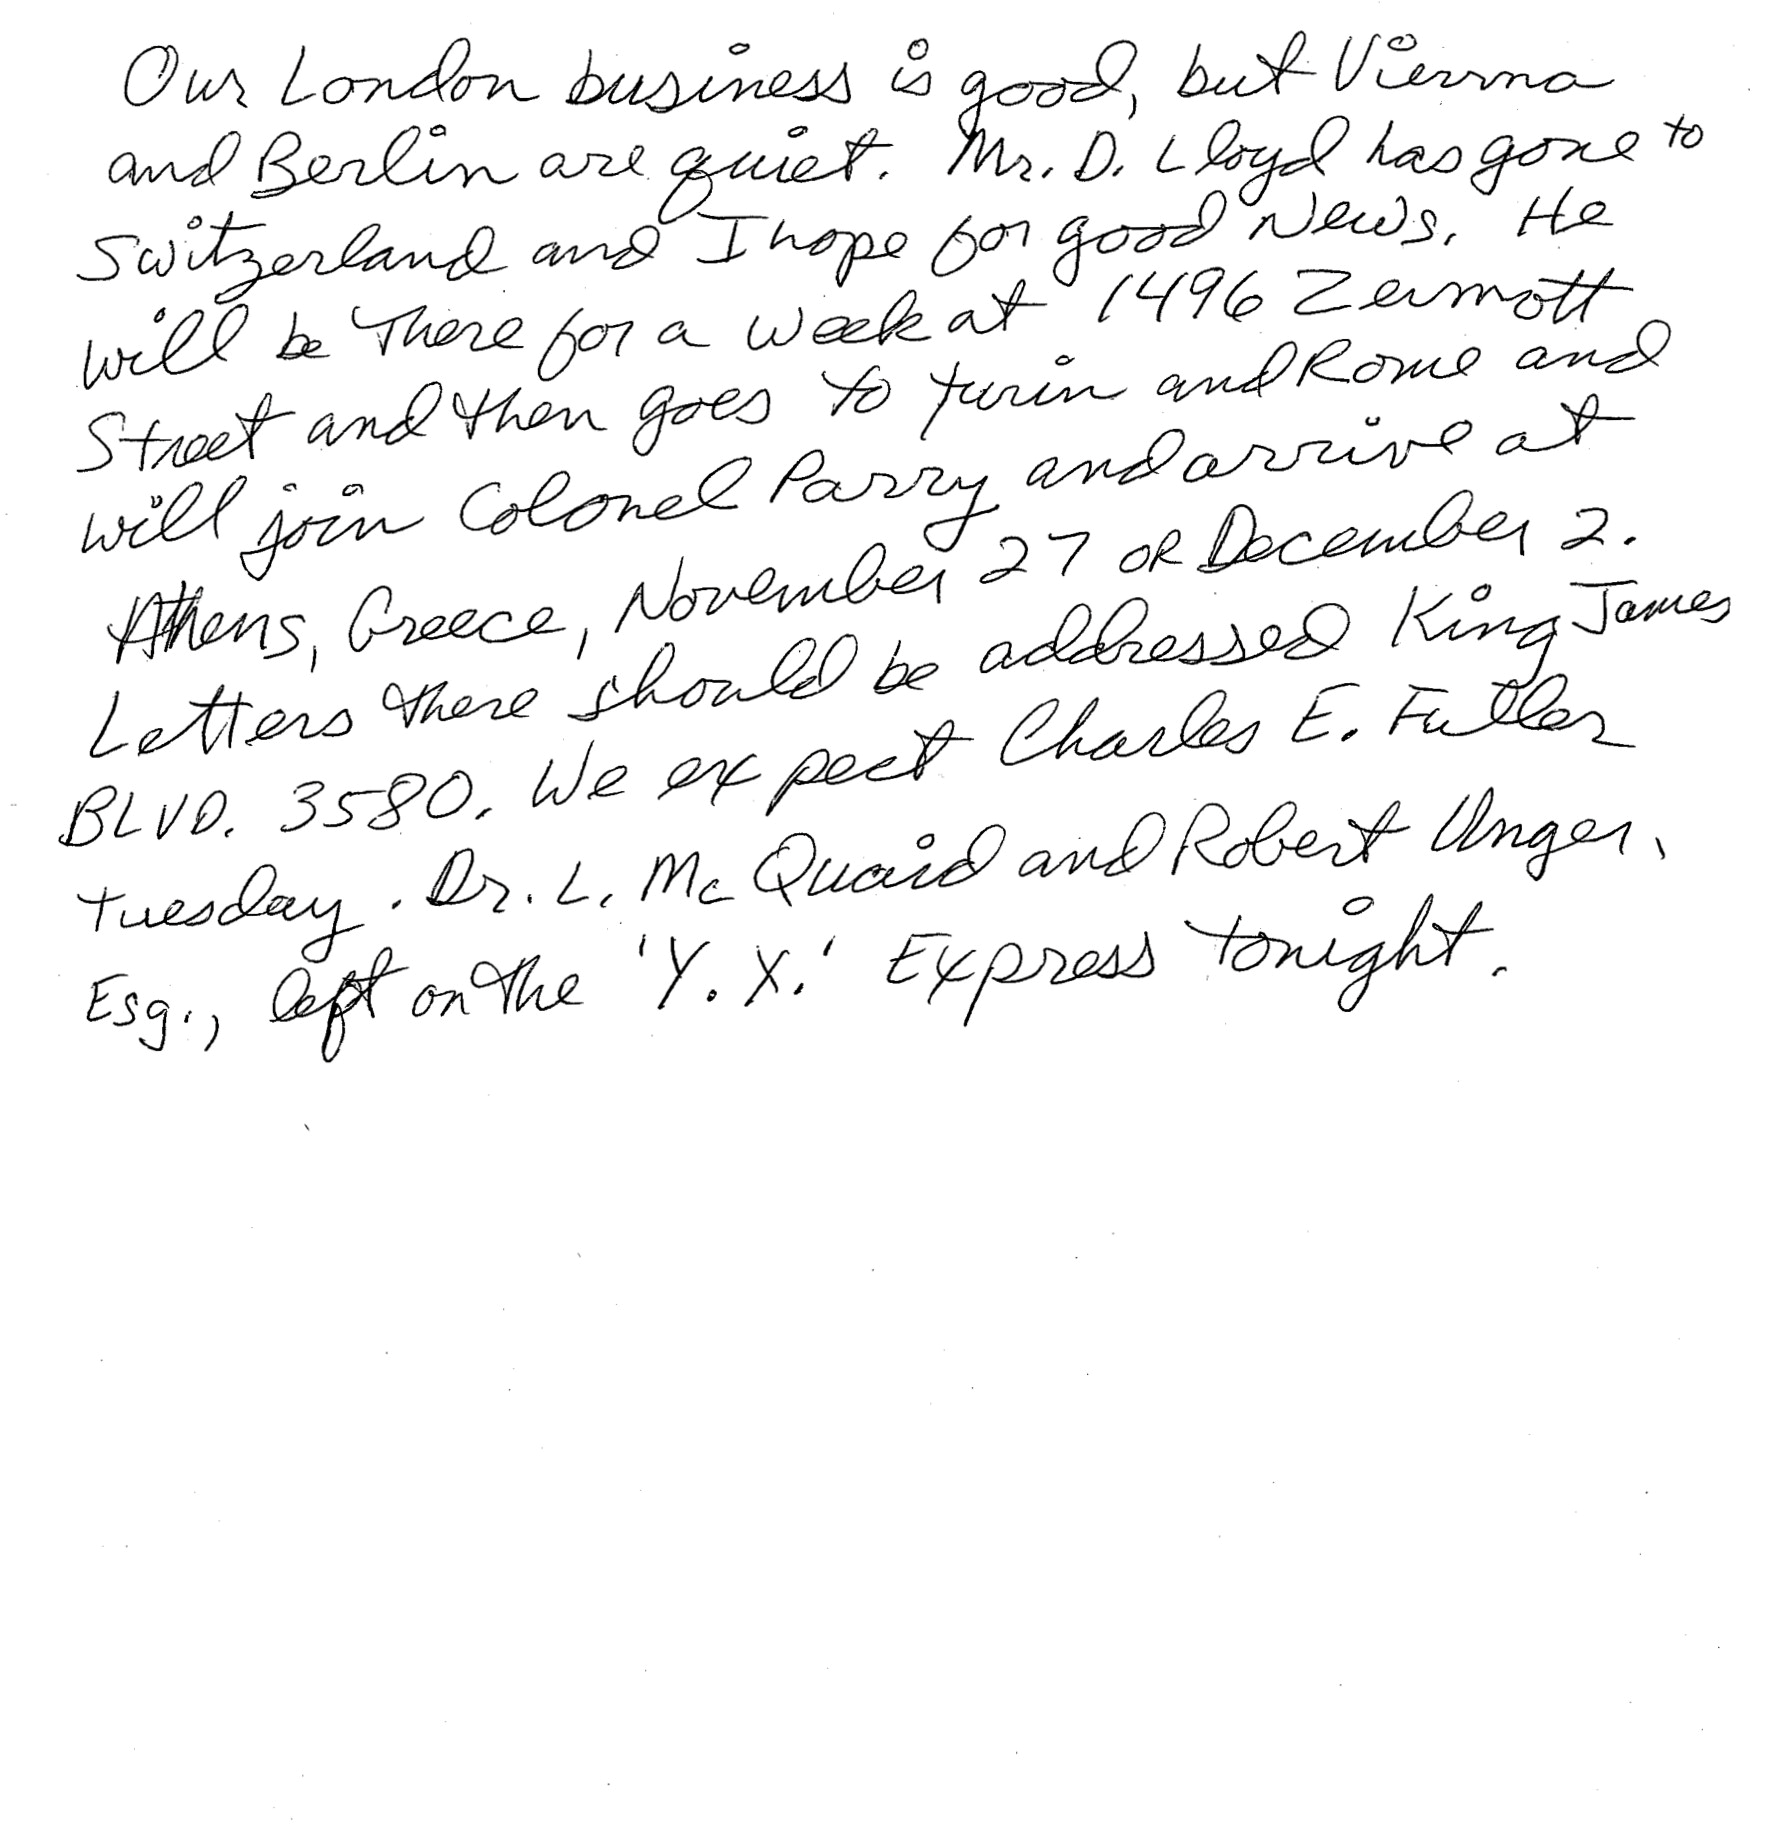 Our London business is good, but Vienna
and Berlin are quiet. Mr. D. Lloyd has gone to
Switzerland and I hope for good News. He
will be There for a week at 1496 Zermott
Street and then goes to turin and Rome and
will join Colonel Parry and arrive at
Athens, Greece, November 27 OR December 2.
Letters there should be addressed King James
BLVD. 3580. We expect Charles E. Fuller
tuesday. Dr. L. Mc Quaid and Robert Unger,
Esq., left on the 'Y. X.' Express tonight.